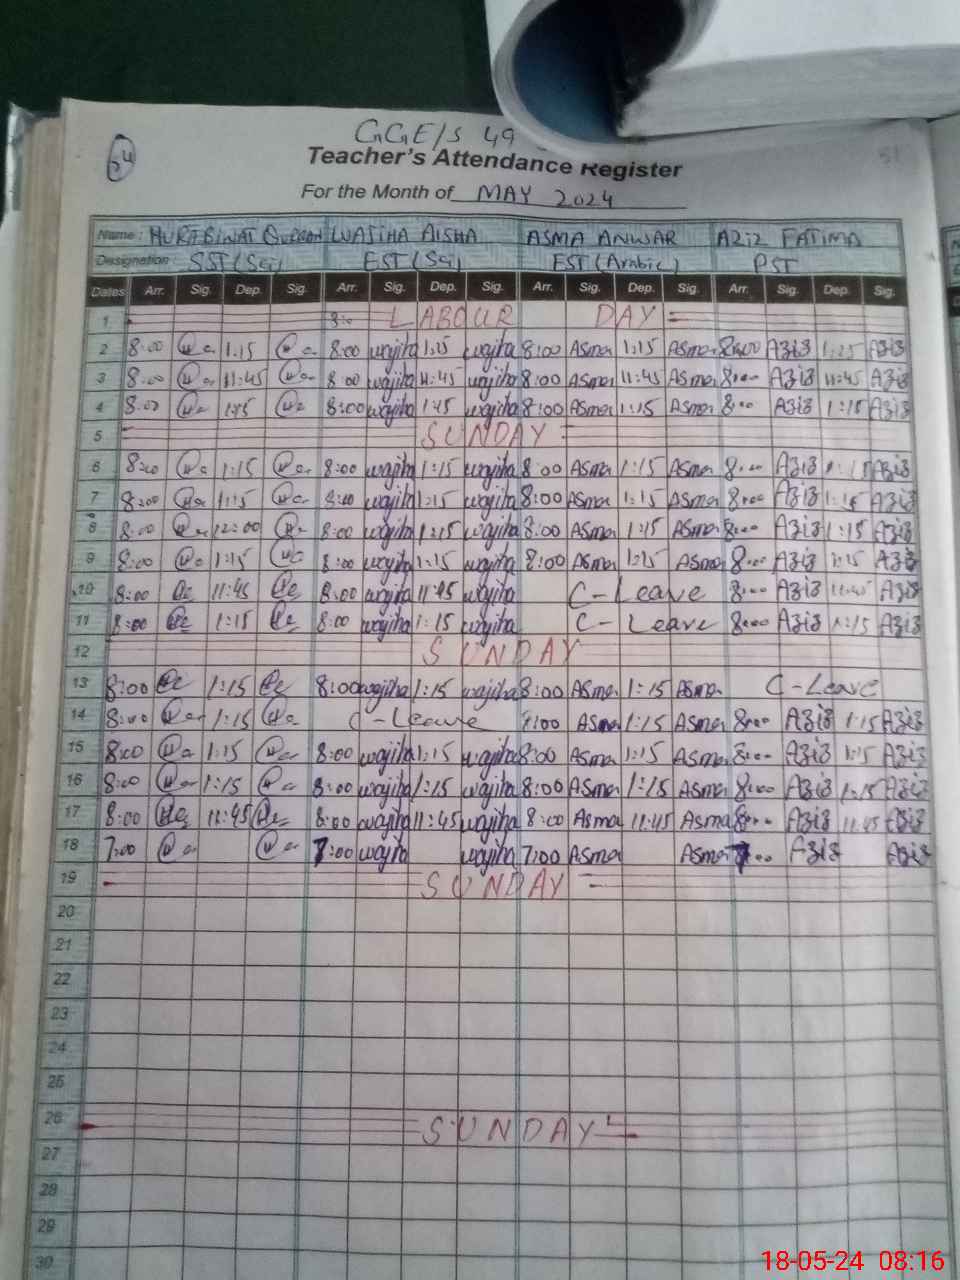 54
GGE/S 49
51
Teacher's Attendance Register
For the Month of MAY 2024
Name: WAJIHA AISHA ASMA ANWAR AZIZ FATIMA
Designation: SST (Sci) EST (Sci) EST (Arabic) PST
Dates Arr. Sig. Dep. Sig. Arr. Sig. Dep. Sig. Arr. Sig. Dep. Sig. Arr. Sig. Dep. Sig.
1 8:0 LABOUR DAY
2 8:00 1:15 8:00 wajiha 1:15 wajiha 8:00 Asma 1:15 Asma 8:00 Aziz 1:15 Aziz
3 8:00 11:45 8:00 wajiha 11:45 wajiha 8:00 Asma 11:45 Asma 8:00 Aziz 11:45 Aziz
4 8:00 1:15 8:00 wajiha 1:15 wajiha 8:00 Asma 1:15 Asma 8:00 Aziz 1:15 Aziz
5 SUNDAY
6 8:00 1:15 8:00 wajiha 1:15 wajiha 8:00 Asma 1:15 Asma 8:00 Aziz 1:15 Aziz
7 8:00 1:15 8:00 wajiha 1:15 wajiha 8:00 Asma 1:15 Asma 8:00 Aziz 1:15 Aziz
8 8:00 12:00 8:00 wajiha 1:15 wajiha 8:00 Asma 1:15 Asma 8:00 Aziz 1:15 Aziz
9 8:00 1:15 8:00 wajiha 1:15 wajiha 8:00 Asma 1:15 Asma 8:00 Aziz 1:15 Aziz
10 8:00 11:45 8:00 wajiha 11:45 wajiha C-Leave 8:00 Aziz 11:45 Aziz
11 8:00 1:15 8:00 wajiha 1:15 wajiha C-Leave 8:00 Aziz 1:15 Aziz
12 SUNDAY
13 8:00 1:15 8:00 wajiha 1:15 wajiha 8:00 Asma 1:15 Asma C-Leave
14 8:00 1:15 C-Leave 8:00 Asma 1:15 Asma 8:00 Aziz 1:15 Aziz
15 8:00 1:15 8:00 wajiha 1:15 wajiha 8:00 Asma 1:15 Asma 8:00 Aziz 1:15 Aziz
16 8:00 1:15 8:00 wajiha 1:15 wajiha 8:00 Asma 1:15 Asma 8:00 Aziz 1:15 Aziz
17 8:00 11:45 8:00 wajiha 11:45 wajiha 8:00 Asma 11:45 Asma 8:00 Aziz 11:45 Aziz
18 7:00 7:00 wajiha wajiha 7:00 Asma Asma 7:00 Aziz Aziz
19 SUNDAY
20
21
22
23
24
25
26 SUNDAY
27
28
29
30
18-05-24 08:16